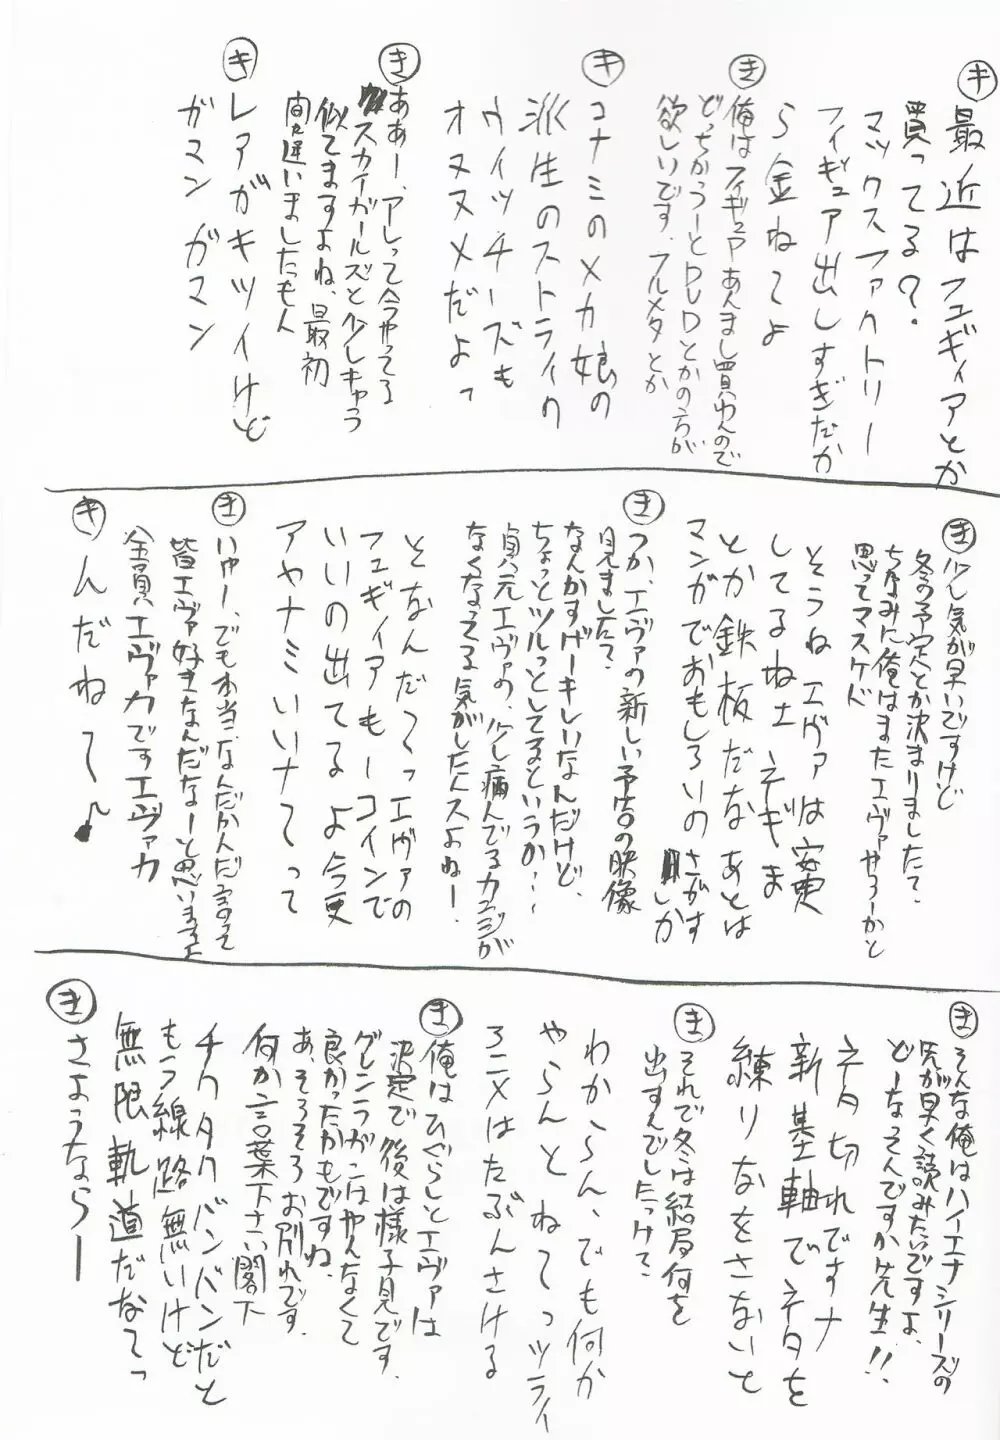 ㋖最近はフュギィアとか
買ってる?
マックスファクトリー
フィギュア出しすぎだか
ら金ねてよ
㋖俺はフィギュアあんまし買わんので
どっちかうーとDVDとかの方が
欲しいです、フルメタとか
㋖コナミのメカ娘の
派生のストライク
ウィッチーズも
オススメだよっ
㋖ああー、アレって今やってる
スカイガールズと少しキャラ
似てますよね、最初
間違いましたもん
㋖レアがキツイけど
ガマンガマン
㋖少し気が早いですけど
冬の予定とか決まりましたて、
ちなみに俺はまたエヴァやろーかと
思ってマスケド
そうねエヴァは安更
してるねェネギま
とか鉄板だなあとは
マンガでおもしろいのさがす
しか
㋖つか、エヴァの新しい予告の映像
見ましたて、
なんかすげーキレイなんだけど、
ちょっとツルっとしてるというか…
貞元エヴァの、少し病んでるカンジが
なくなってる気がしたんスよねー!
そなんだ〜っエヴァの
フュギィアも一コインで
いいの出てるよ今更
アヤナミいいナてって
㋖いやー、でも本当、なんだかんだ言って
皆エヴァ好きなんだなーと思いますよ
全員エヴァカですエヴァカ
㋖んだねて〜♪
㋖そんな俺はハイエナシリーズの
先が早く読みたいですよ、
どーなってんですか先生!!
ネタ切れですナ
新基軸でネタを
練りなをさないと
㋖それで冬は結局何を
出すんでしたっけて、
わから〜ん、でも何か
やらんとねてっツライ
アニメはたぶんさける
㋖俺はひぐらしとエヴァは
決定で後は様子見です、
グレンラガンはやんなくて
良かったかもですね、
あ、そろそろお別れです、
何か言葉下さい閣下
チクタクバンバンだと
もう線路無いけど
無限軌道だなてっ
㋖さようならー